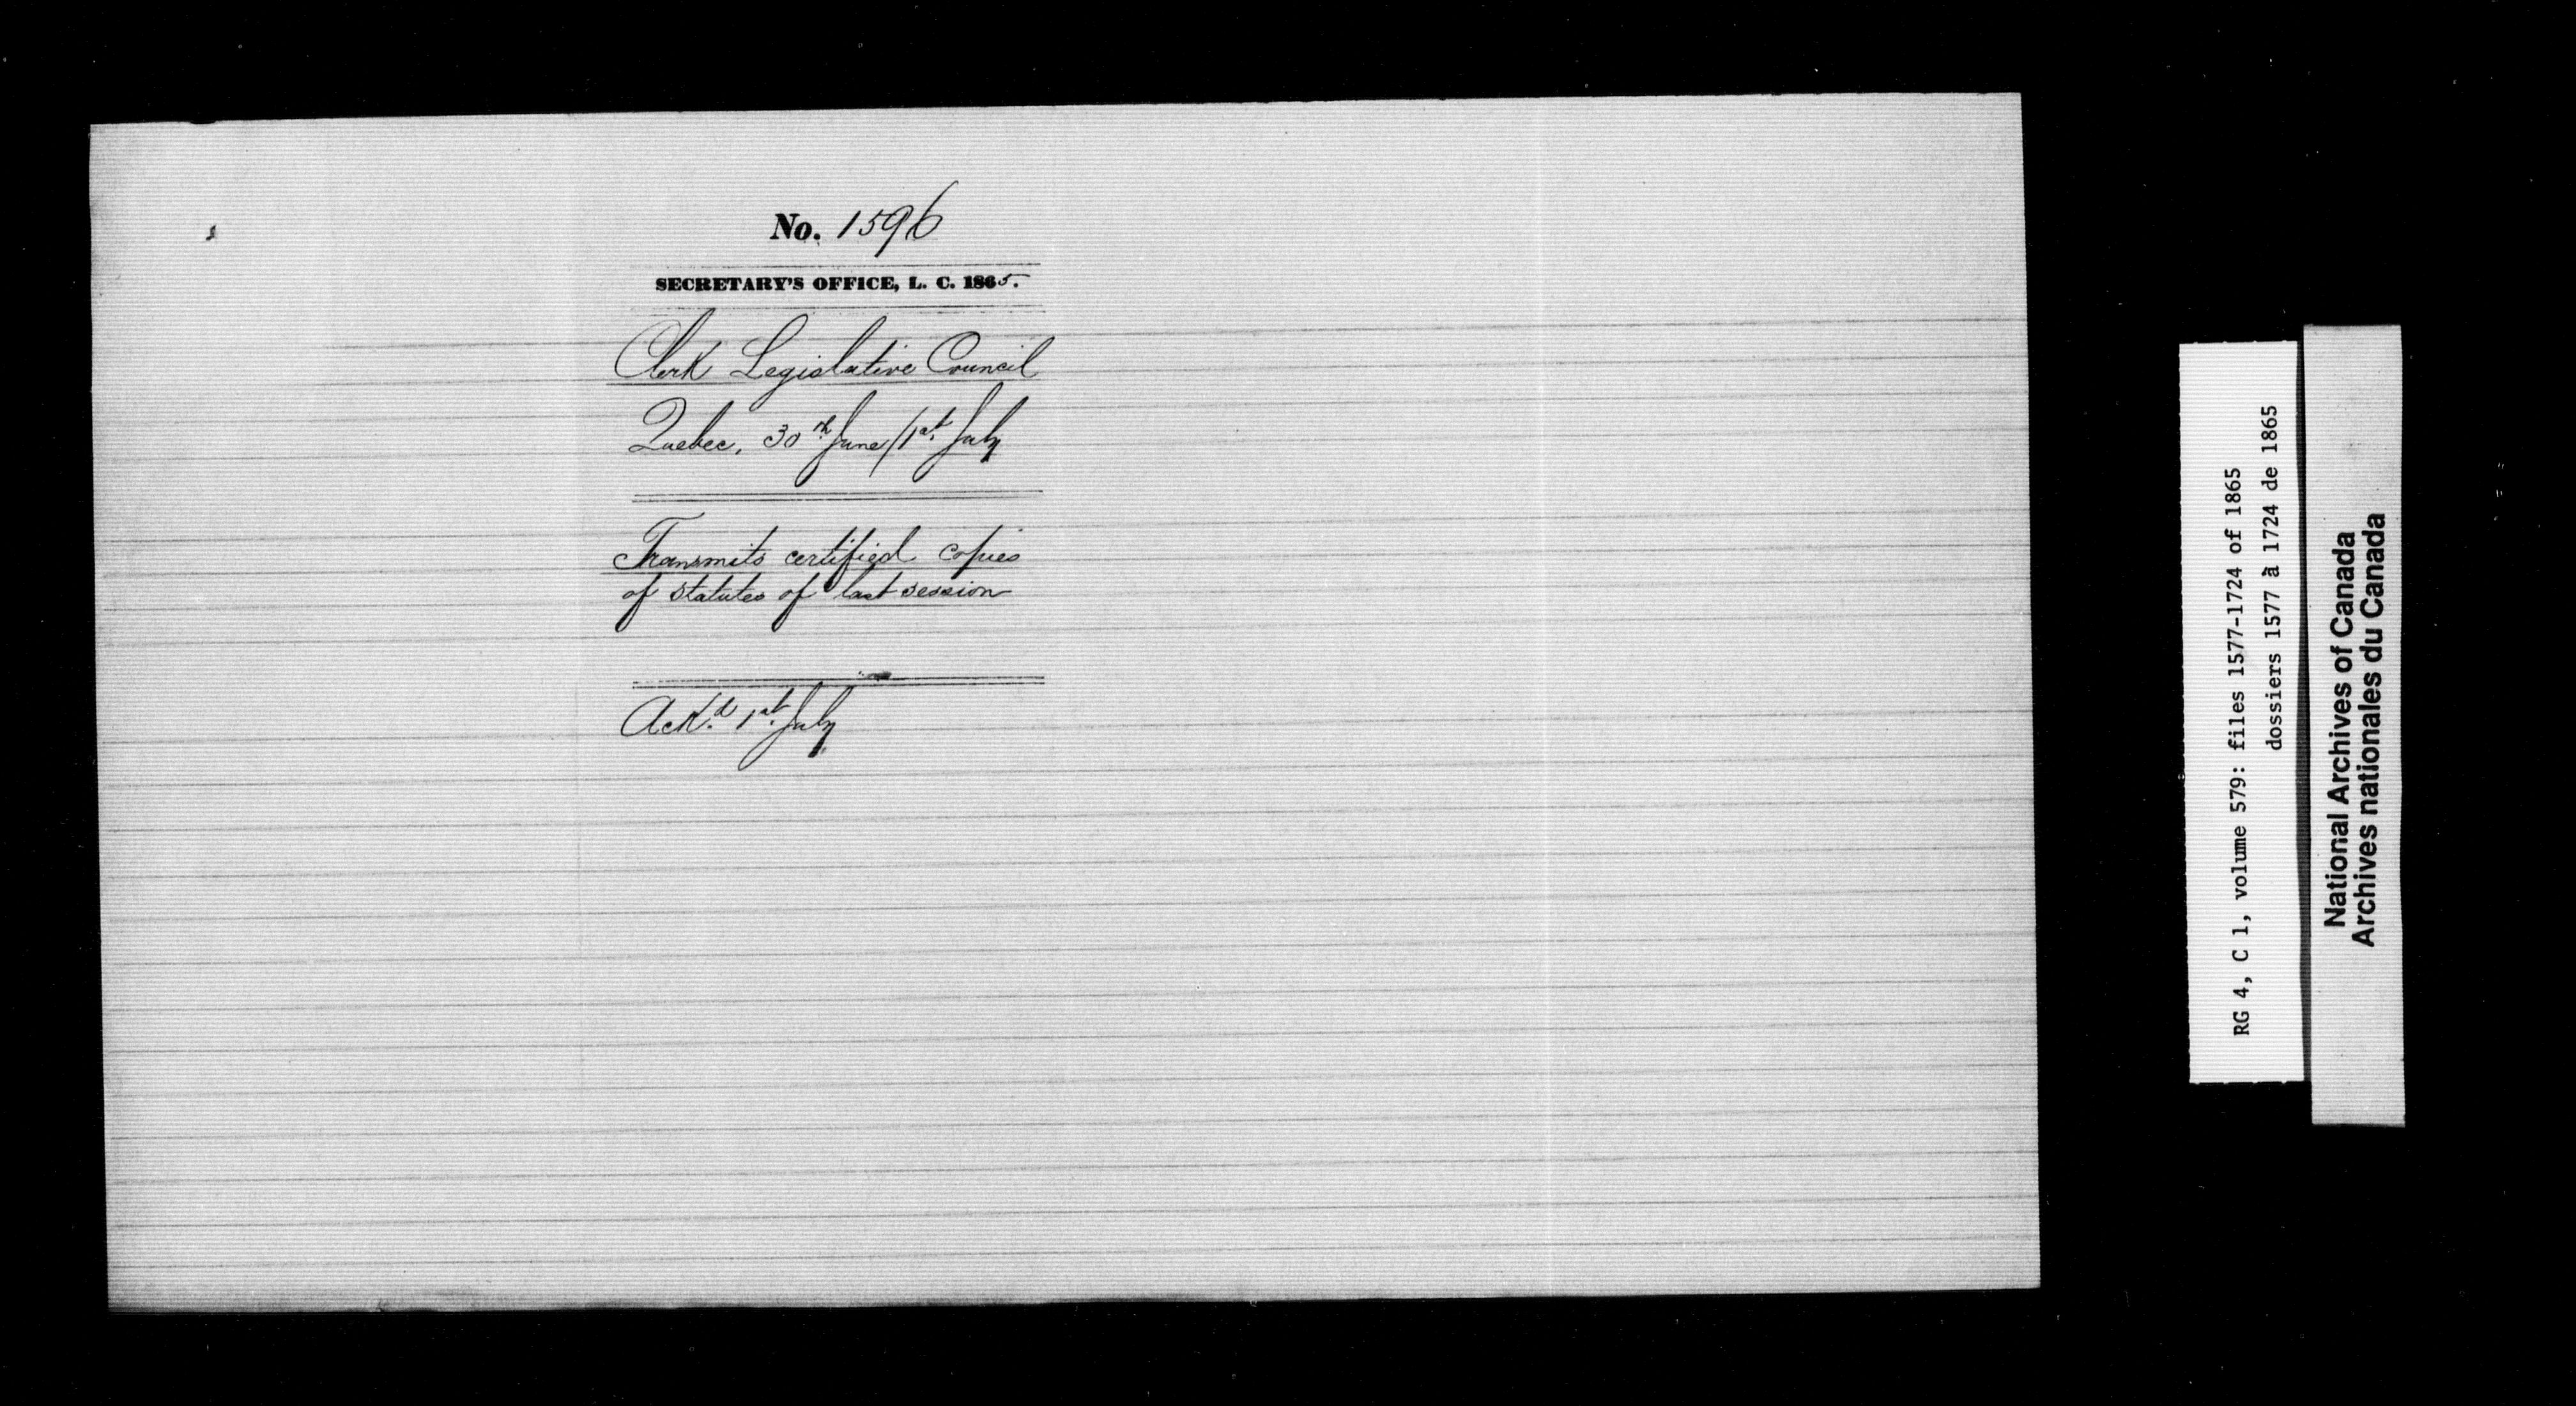 No. 1596
SECRETARY'S OFFICE, L. C. 1865.
Clerk Legislative Council
Quebec, 30th June/1st July
Transmits certified copies
of statutes of last session
Ackd. 1st July
RG 4, C 1, volume 579: files 1577-1724 of 1865
dossiers 1577 à 1724 de 1865
National Archives of Canada
Archives nationales du Canada